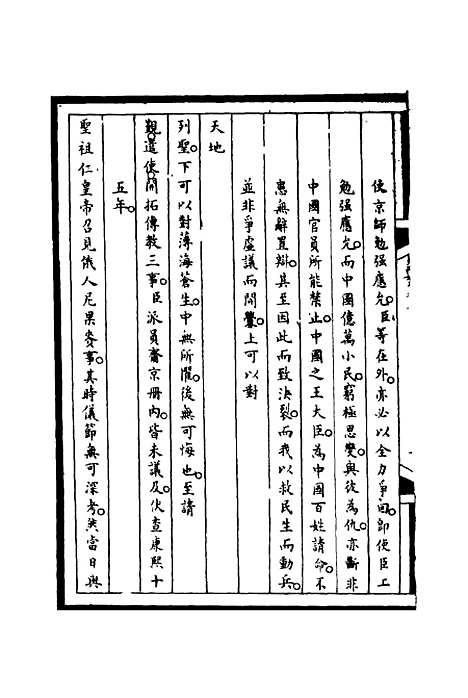 使京師勉强應允。臣等在外。亦必以全力爭回。即使臣工
勉强應允。而中國億萬小民。窮極思變。與彼為仇。亦斷非
中國官員所能禁止。中國之王大臣。為中國百姓請命。不
患無辭置辯。甚至因此而致決裂。而我以救民生而動兵。
並非爭虛議而開釁。上可以對
天地
列聖。下可以對薄海蒼生。中無所懼。後無可悔也。至請
覲。遣使。開拓傳教三事。臣派員齎京冊內。皆未議及。伏查康熙十
五年。
聖祖仁皇帝召見俄人尼果賚事。其時儀節無可深考。然當日與